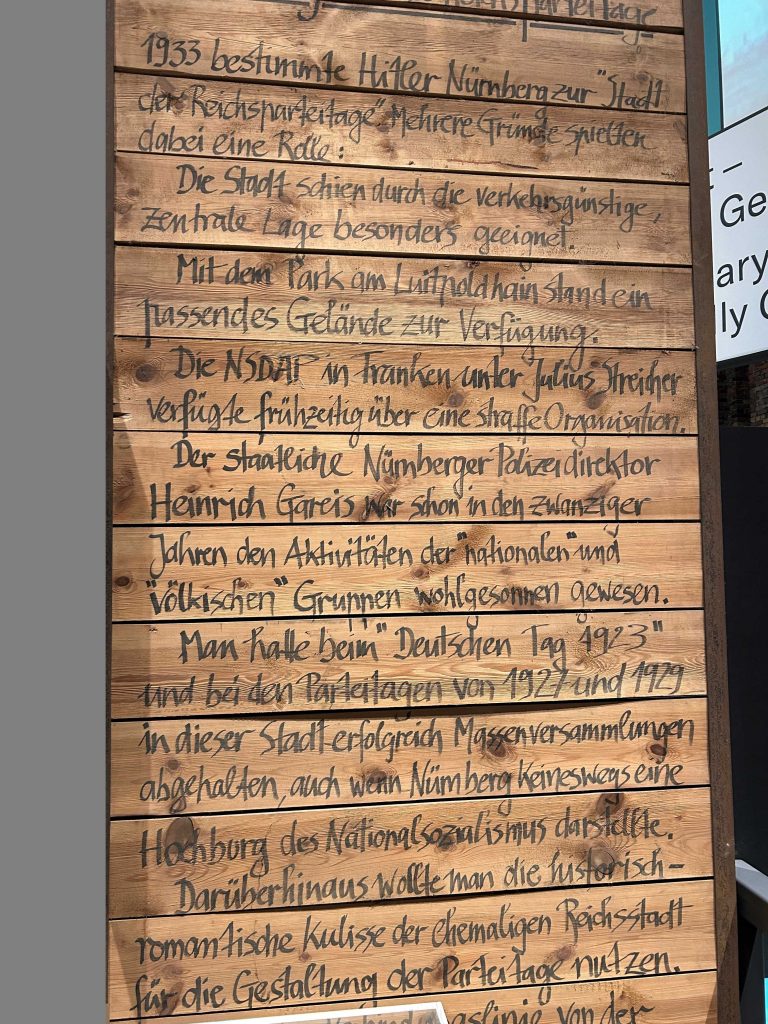 Reichsparteitage
1933 bestimmte Hitler Nürnberg zur "Stadt
der Reichsparteitage". Mehrere Gründe spielten
dabei eine Rolle:
Die Stadt schien durch die verkehrsgünstige,
zentrale Lage besonders geeignet.
Mit dem Park am Luitpoldhain stand ein
passendes Gelände zur Verfügung.
Die NSDAP in Franken unter Julius Streicher
verfügte frühzeitig über eine straffe Organisation.
Der staatliche Nürnberger Polizeidirektor
Heinrich Gareis war schon in den zwanziger
Jahren den Aktivitäten der "nationalen" und
"völkischen" Gruppen wohlgesonnen gewesen.
Man hatte beim "Deutschen Tag 1923"
und bei den Parteitagen von 1927 und 1929
in dieser Stadt erfolgreich Massenversammlungen
abgehalten, auch wenn Nürnberg keineswegs eine
Hochburg des Nationalsozialismus darstellte.
Darüberhinaus wollte man die historisch-
romantische Kulisse der ehemaligen Reichsstadt
für die Gestaltung der Parteitage nutzen.
von der
Ge
ary
lly